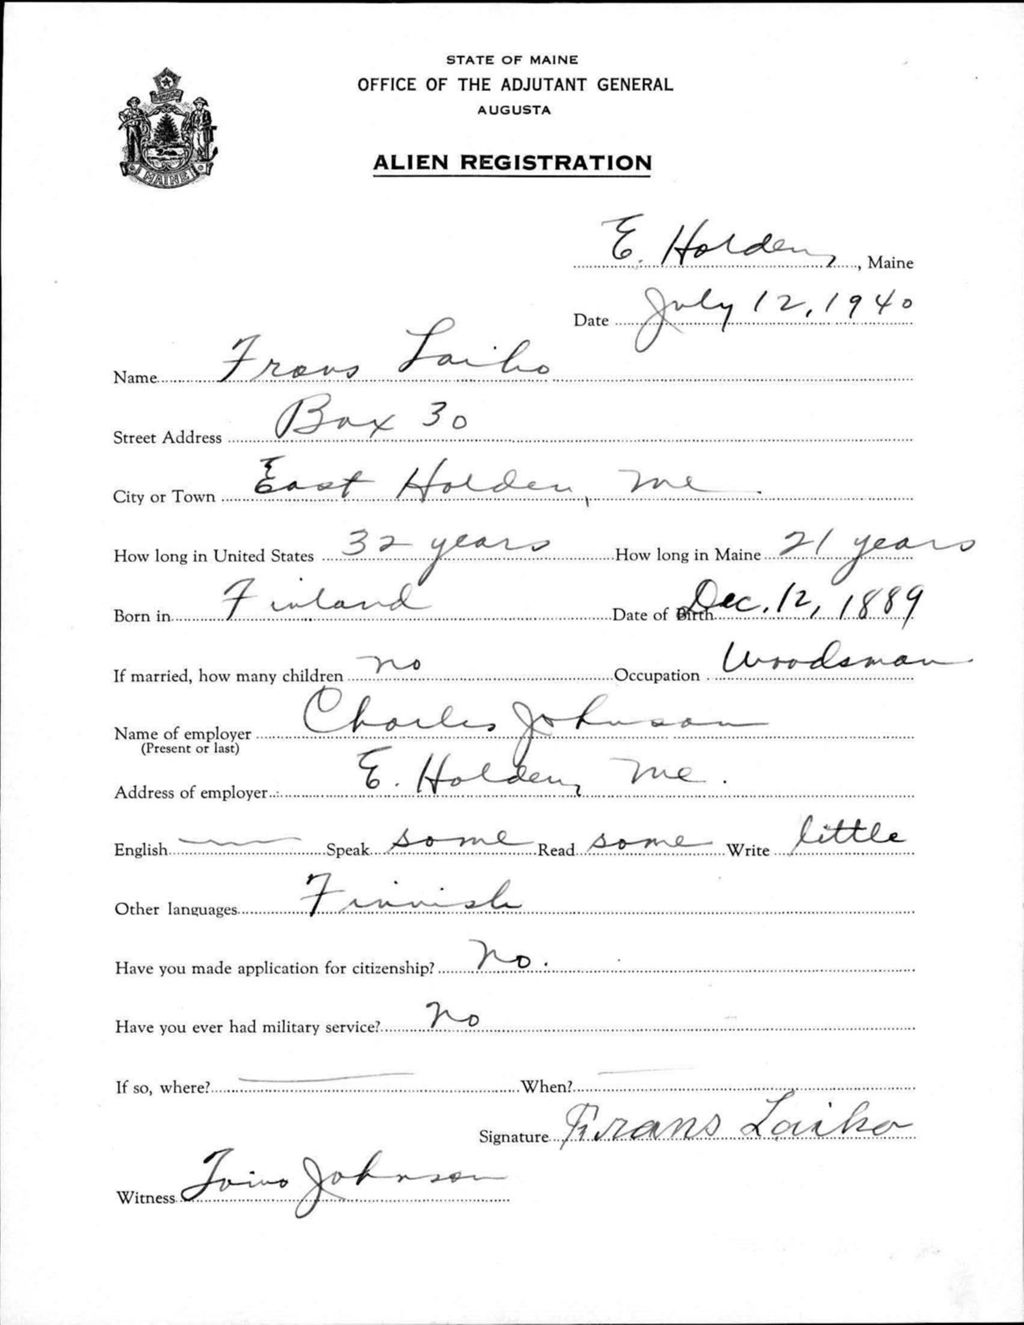 STATE OF MAINE
OFFICE OF THE ADJUTANT GENERAL
AUGUSTA
ALIEN REGISTRATION
MAINE
E. Holden, Maine
Date July 12, 1940
Name Frans Laiho
Street Address Box 30
City or Town East Holden, Me.
How long in United States 32 years How long in Maine 21 years
Born in Finland Date of Birth Dec. 12, 1889
If married, how many children no Occupation Woodsman
Name of employer Charles Johnson
(Present or last)
Address of employer E. Holden, Me.
English Speak some Read some Write little
Other languages Finnish
Have you made application for citizenship? No.
Have you ever had military service? No
If so, where? When?
Signature Frans Laiho
Witness Toivo Johnson